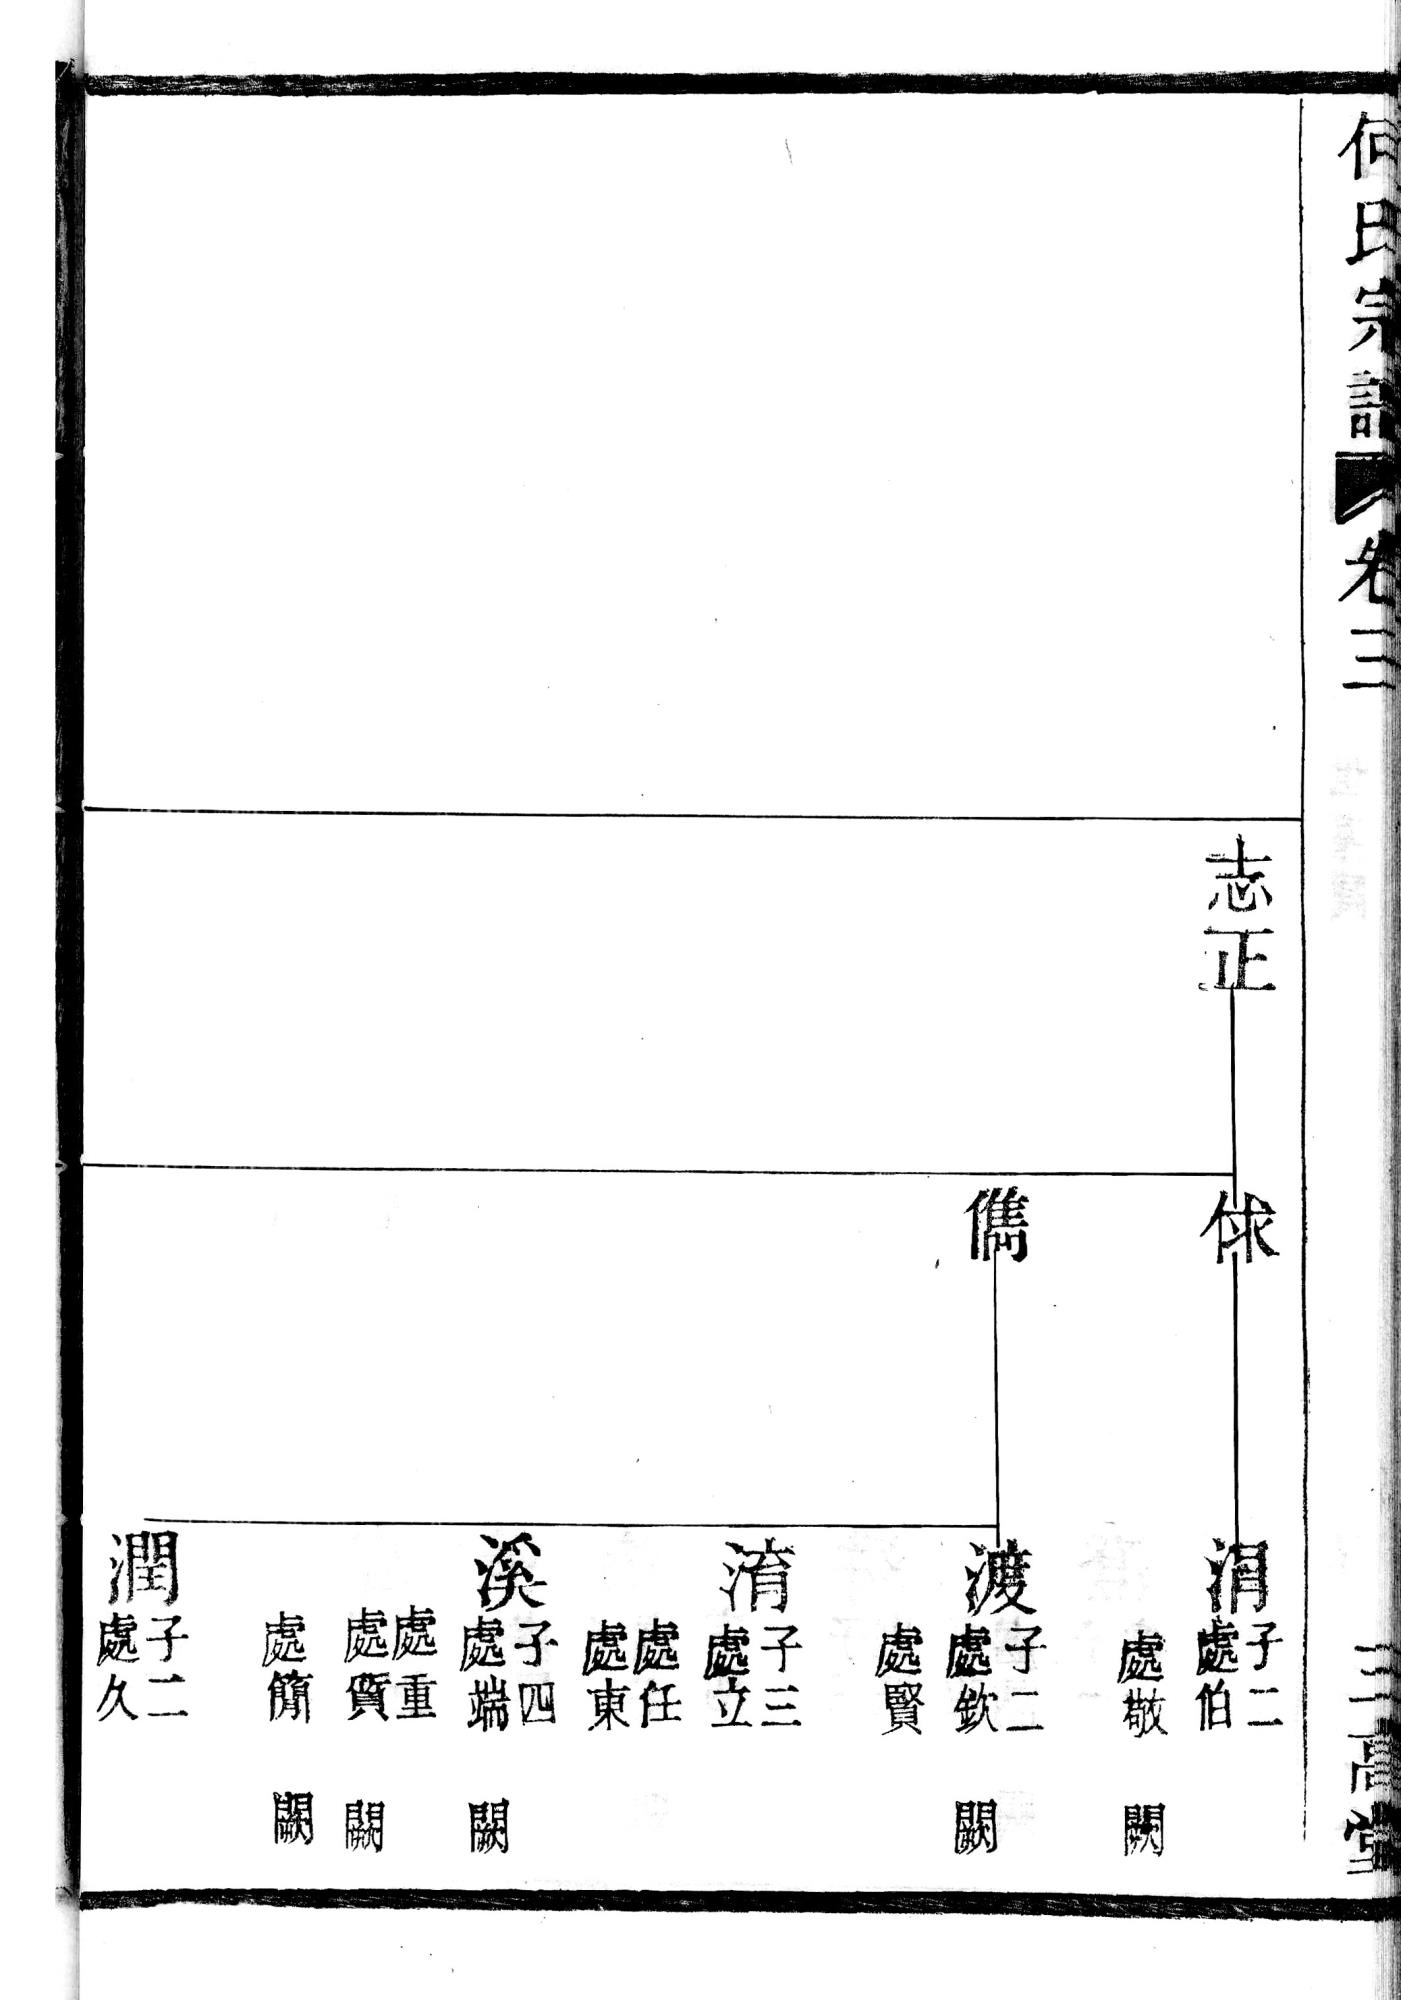 何氏宗譜
卷三
三高堂
志正
俅
儁
涓
子二
處伯
處敬 闕
渡
子二
處欽 闕
處賢
淯
子三
處立
處任
處東
溪
子四
處端 闕
處重
處質 闕
處簡 闕
潤
子二
處久